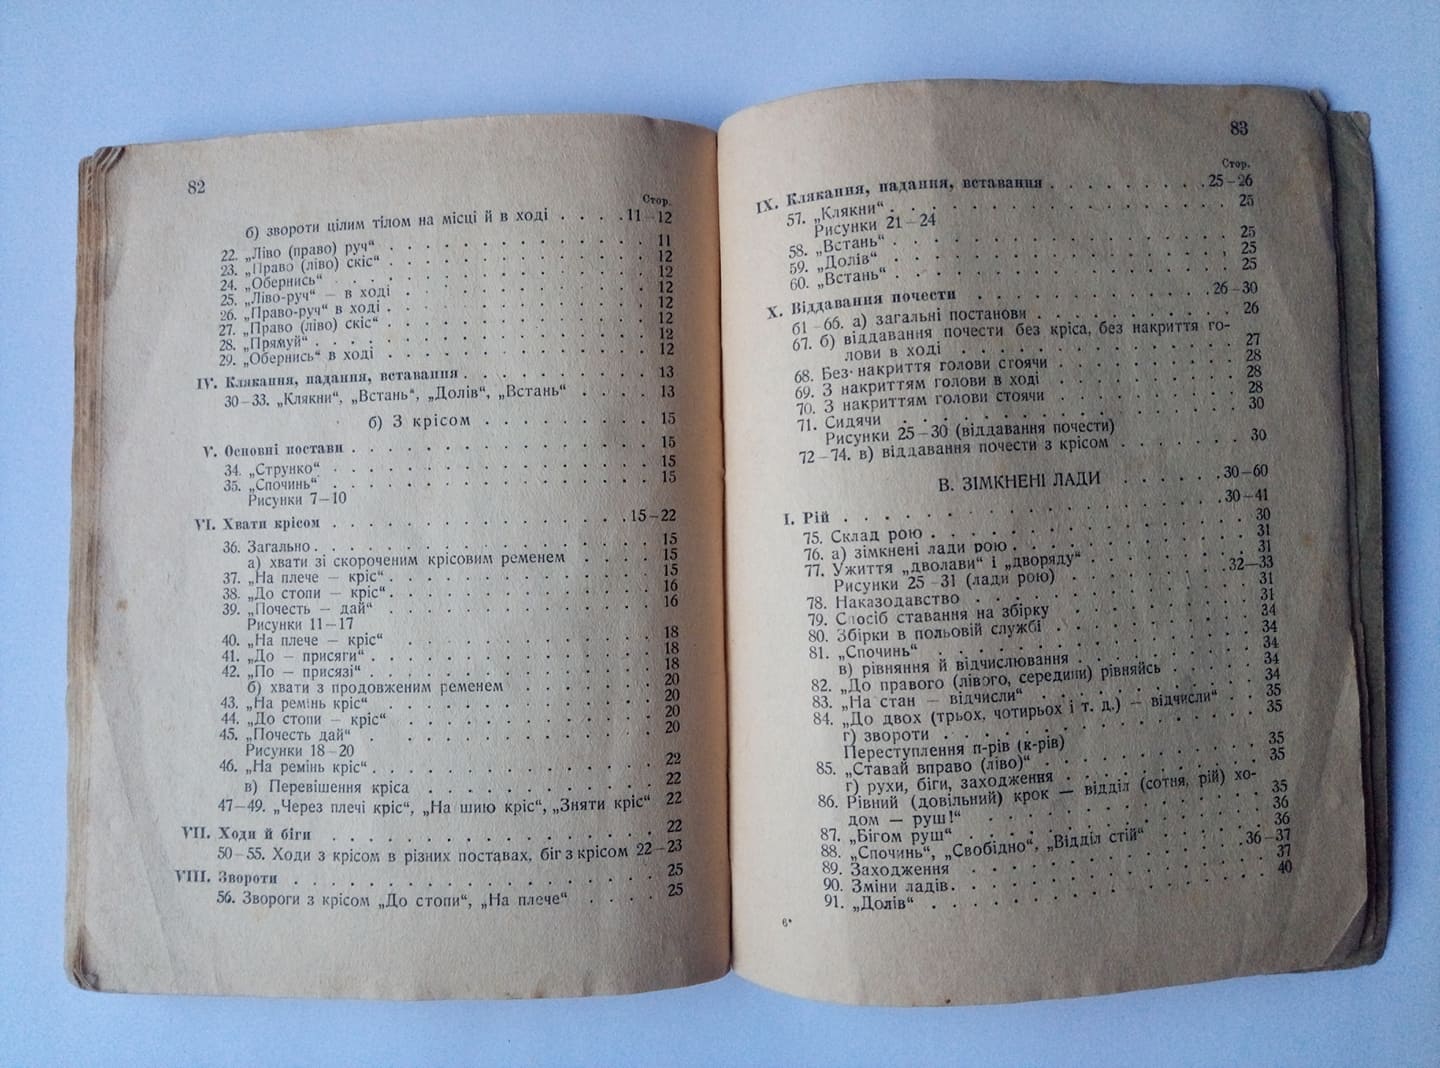 82
Стор.
б) звороти цілим тілом на місці й в ході . . . . 11—12
22. „Ліво (право) руч“ . . . . . . . . . 11
23. „Право (ліво) скіс“ . . . . . . . . . 12
24. „Обернись“ . . . . . . . . . 12
25. „Ліво-руч“ — в ході . . . . . . . . . 12
26. „Право-руч“ в ході . . . . . . . . . 12
27. „Право (ліво) скіс“ . . . . . . . . . 12
28. „Прямуй“ . . . . . . . . . 12
29. „Обернись“ в ході . . . . . . . . . 12
IV. Клякання, падання, вставання . . . . . . . . . 13
30—33. „Клякни“, „Встань“, „Долів“, „Встань“ . . . . 13
б) З крісом . . . . . . . . . 15
V. Основні постави . . . . . . . . . 15
34. „Струнко“ . . . . . . . . . 15
35. „Спочинь“ . . . . . . . . . 15
Рисунки 7—10
VI. Хвати крісом . . . . . . . . . 15—22
36. Загально . . . . . . . . . 15
а) хвати зі скороченим крісовим ременем . . . . 15
37. „На плече — кріс“ . . . . . . . . . 15
38. „До стопи — кріс“ . . . . . . . . . 16
39. „Почесть — дай“ . . . . . . . . . 16
Рисунки 11—17
40. „На плече — кріс“ . . . . . . . . . 18
41. „До — присяги“ . . . . . . . . . 18
42. „По — присязі“ . . . . . . . . . 18
б) хвати з продовженим ременем . . . . . . 20
43. „На ремінь кріс“ . . . . . . . . . 20
44. „До стопи — кріс“ . . . . . . . . . 20
45. „Почесть дай“ . . . . . . . . . 20
Рисунки 18—20
46. „На ремінь кріс“ . . . . . . . . . 22
в) Перевішення кріса . . . . . . . . . 22
47—49. „Через плечі кріс“, „На шию кріс“, „Зняти кріс“ 22
VII. Ходи й біги . . . . . . . . . 22
50—55. Ходи з крісом в різних поставах, біг з крісом 22—23
VIII. Звороти . . . . . . . . . 25
56. Звороги з крісом „До стопи“, „На плече“ . . . . 25
83
Стор.
IX. Клякання, падання, вставання . . . . . . . . . 25—26
57. „Клякни“ . . . . . . . . . 25
Рисунки 21—24
58. „Встань“ . . . . . . . . . 25
59. „Долів“ . . . . . . . . . 25
60. „Встань“ . . . . . . . . . 25
X. Віддавання почести . . . . . . . . . 26—30
61—66. а) загальні постанови . . . . . . . . . 26
67. б) віддавання почести без кріса, без накриття го-
лови в ході . . . . . . . . . 27
68. Без накриття голови стоячи . . . . . . . . . 28
69. З накриттям голови в ході . . . . . . . . . 28
70. З накриттям голови стоячи . . . . . . . . . 28
71. Сидячи . . . . . . . . . 30
Рисунки 25—30 (віддавання почести)
72—74. в) віддавання почести з крісом . . . . . . . 30
В. ЗІМКНЕНІ ЛАДИ . . . . . . 30—60
I. Рій . . . . . . . . . 30—41
75. Склад рою . . . . . . . . . 30
76. а) зімкнені лади рою . . . . . . . . . 31
77. Ужиття „дволави“ і „дворяду“ . . . . . . . . . 31
Рисунки 25—31 (лади рою) . . . . . . . . . 32—33
78. Наказодавство . . . . . . . . . 31
79. Спосіб ставання на збірку . . . . . . . . . 31
80. Збірки в польовій службі . . . . . . . . . 34
81. „Спочинь“ . . . . . . . . . 34
в) рівняння й відчислювання . . . . . . . . . 34
82. „До правого (лівого, середини) рівняйсь . . . . 34
83. „На стан — відчисли“ . . . . . . . . . 34
84. „До двох (трьох, чотирьох і т. д.) — відчисли“ . . 35
г) звороти . . . . . . . . . 35
Переступлення п-рів (к-рів)
85. „Ставай вправо (ліво)“ . . . . . . . . . 35
г) рухи, біги, заходження . . . . . . . . . 35
86. Рівний (довільний) крок — відділ (сотня, рій) хо-
дом — руш!“ . . . . . . . . . 35
87. „Бігом руш“ . . . . . . . . . 36
88. „Спочинь“, „Свобідно“, „Відділ стій“ . . . . . . 36
89. Заходження . . . . . . . . . 36—37
90. Зміни ладів . . . . . . . . . 37
91. „Долів“ . . . . . . . . . 40
6*